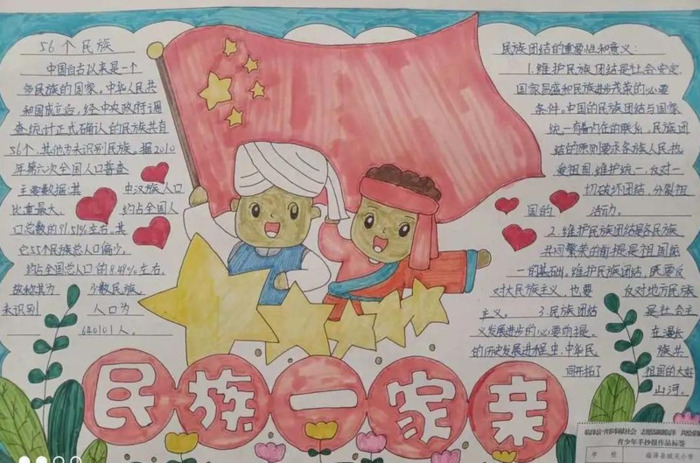 56个民族
中国自古以来是一个
多民族的国家,中华人民共
和国成立后,经中央政府调
查统计正式确认的民族共有
56个,其他为未识别民族。据2010
年第六次全国人口普查
主要数据:其 中汉族人口
比重最大, 约占全国人
口总数的91.51%左右,其
它55个民族总人口偏少,
约占全国总人口的8.49%左右,
故称其为 少数民族。
未识别 人口为
640101人。
民族团结的重要性和意义:
1.维护民族团结是社会安定、
国家昌盛和民族进步繁荣的必要
条件。中国的民族团结与国家
统一有着内在的联系,民族团
结的原则要求各族人民热
爱祖国,维护统一,反对一
切破坏团结、分裂祖
国的 活动。
2.维护民族团结是各民族
共同繁荣的前提是祖国统
一的基础。维护民族团结,既要反
对大民族主义,也要 反对地方民族
主义。 3.民族团结 是社会主
义发展进步的必要前提。 在漫长
的历史发展进程中,中华民 族共
同开拓了 祖国的大好
山河。
民族一家亲
青少年手抄报作品标签
学 校